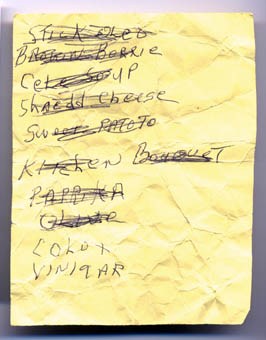 Stick Oleo
Berrie
SOUP
Shredd Cheese
Sweet PATOTO
Kitchen Bouquet
PAPRIKA
COLOX
VINIGAR